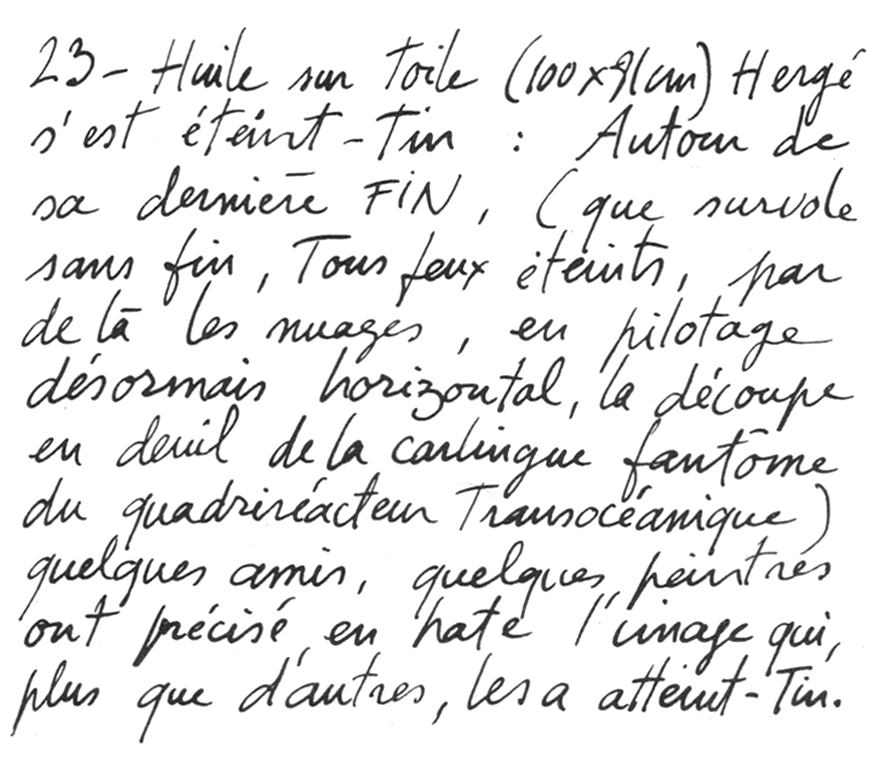 23- Huile sur Toile (100x81cm) Hergé
s'est éteint-Tin : Autour de
sa dernière FiN, (que survole
sans fin, Tous feux éteints, par
de là les nuages, en pilotage
désormais horizontal, la découpe
en deuil de la carlingue fantôme
du quadriréacteur Transocéanique)
quelques amis, quelques peintres
ont précisé en hate l'image qui,
plus que d'autres, les a atteint-Tin.